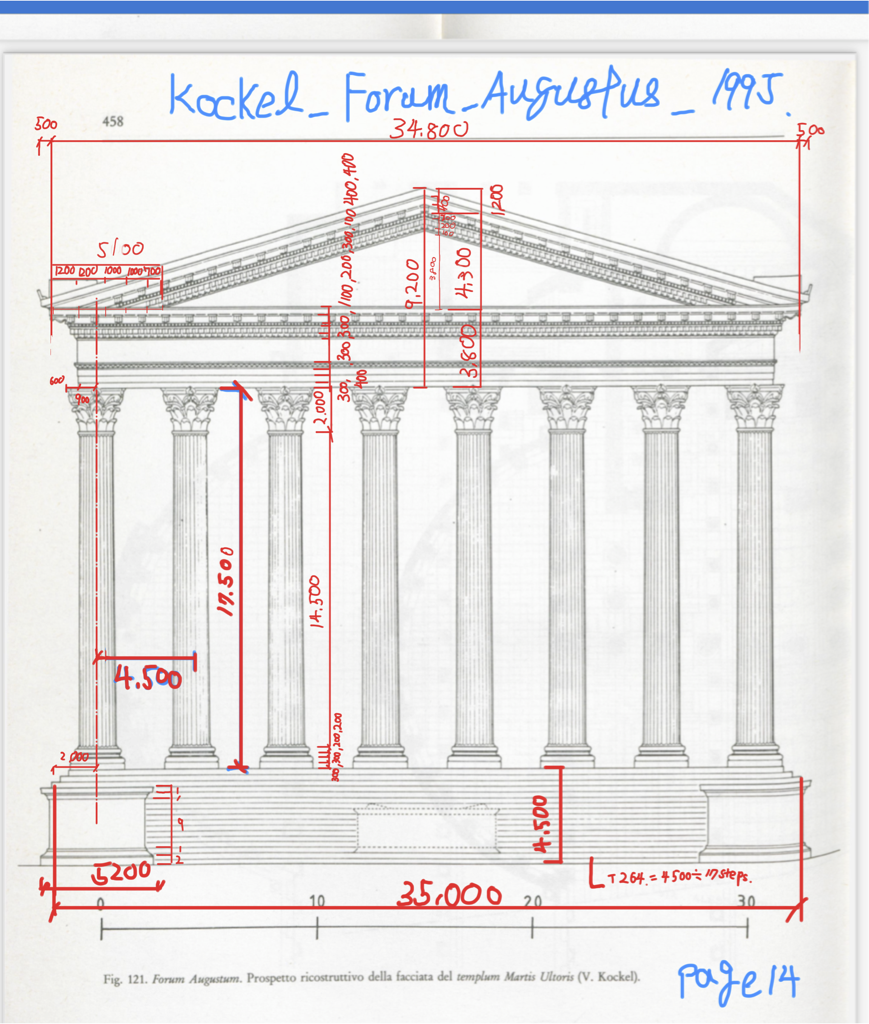 Kockel_Forum_Augustus_1995.
458
500
34.800
500
1200
5100
1200 1200 1000 1000 700
300,100 400,400
1100,200
300
9,200
4.300
3.800
600
900
300, 400
2.000
17.500
14.500
4.500
300,300,200,200
2.000
4.500
5200
T 264. = 4500 ÷ 17 steps.
35.000
0 10 20 30
Fig. 121. Forum Augustum. Prospetto ricostruttivo della facciata del templum Martis Ultoris (V. Kockel).
Page 14